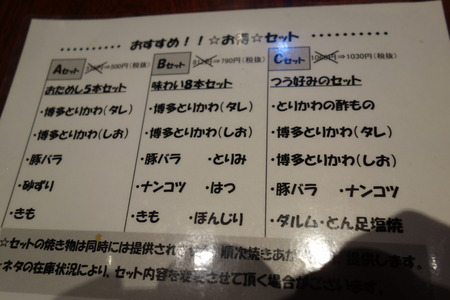 おすすめ！！☆お得☆セット
Aセット ⇒500円(税抜)
おためし5本セット
・博多とりかわ(タレ)
・博多とりかわ(しお)
・豚バラ
・砂ずり
・きも
Bセット ⇒790円(税抜)
味わい8本セット
・博多とりかわ(タレ)
・博多とりかわ(しお)
・豚バラ ・とりみ
・ナンコツ ・はつ
・きも ・ぼんじり
Cセット ⇒1030円(税抜)
つう好みのセット
・とりかわの酢もの
・博多とりかわ(タレ)
・博多とりかわ(しお)
・豚バラ ・ナンコツ
・ダルム・とん足塩焼
☆セットの焼き物は同時には提供され 順次焼きあが 提供します。
ネタの在庫状況により、セット内容を変更させて頂く場合がございます。